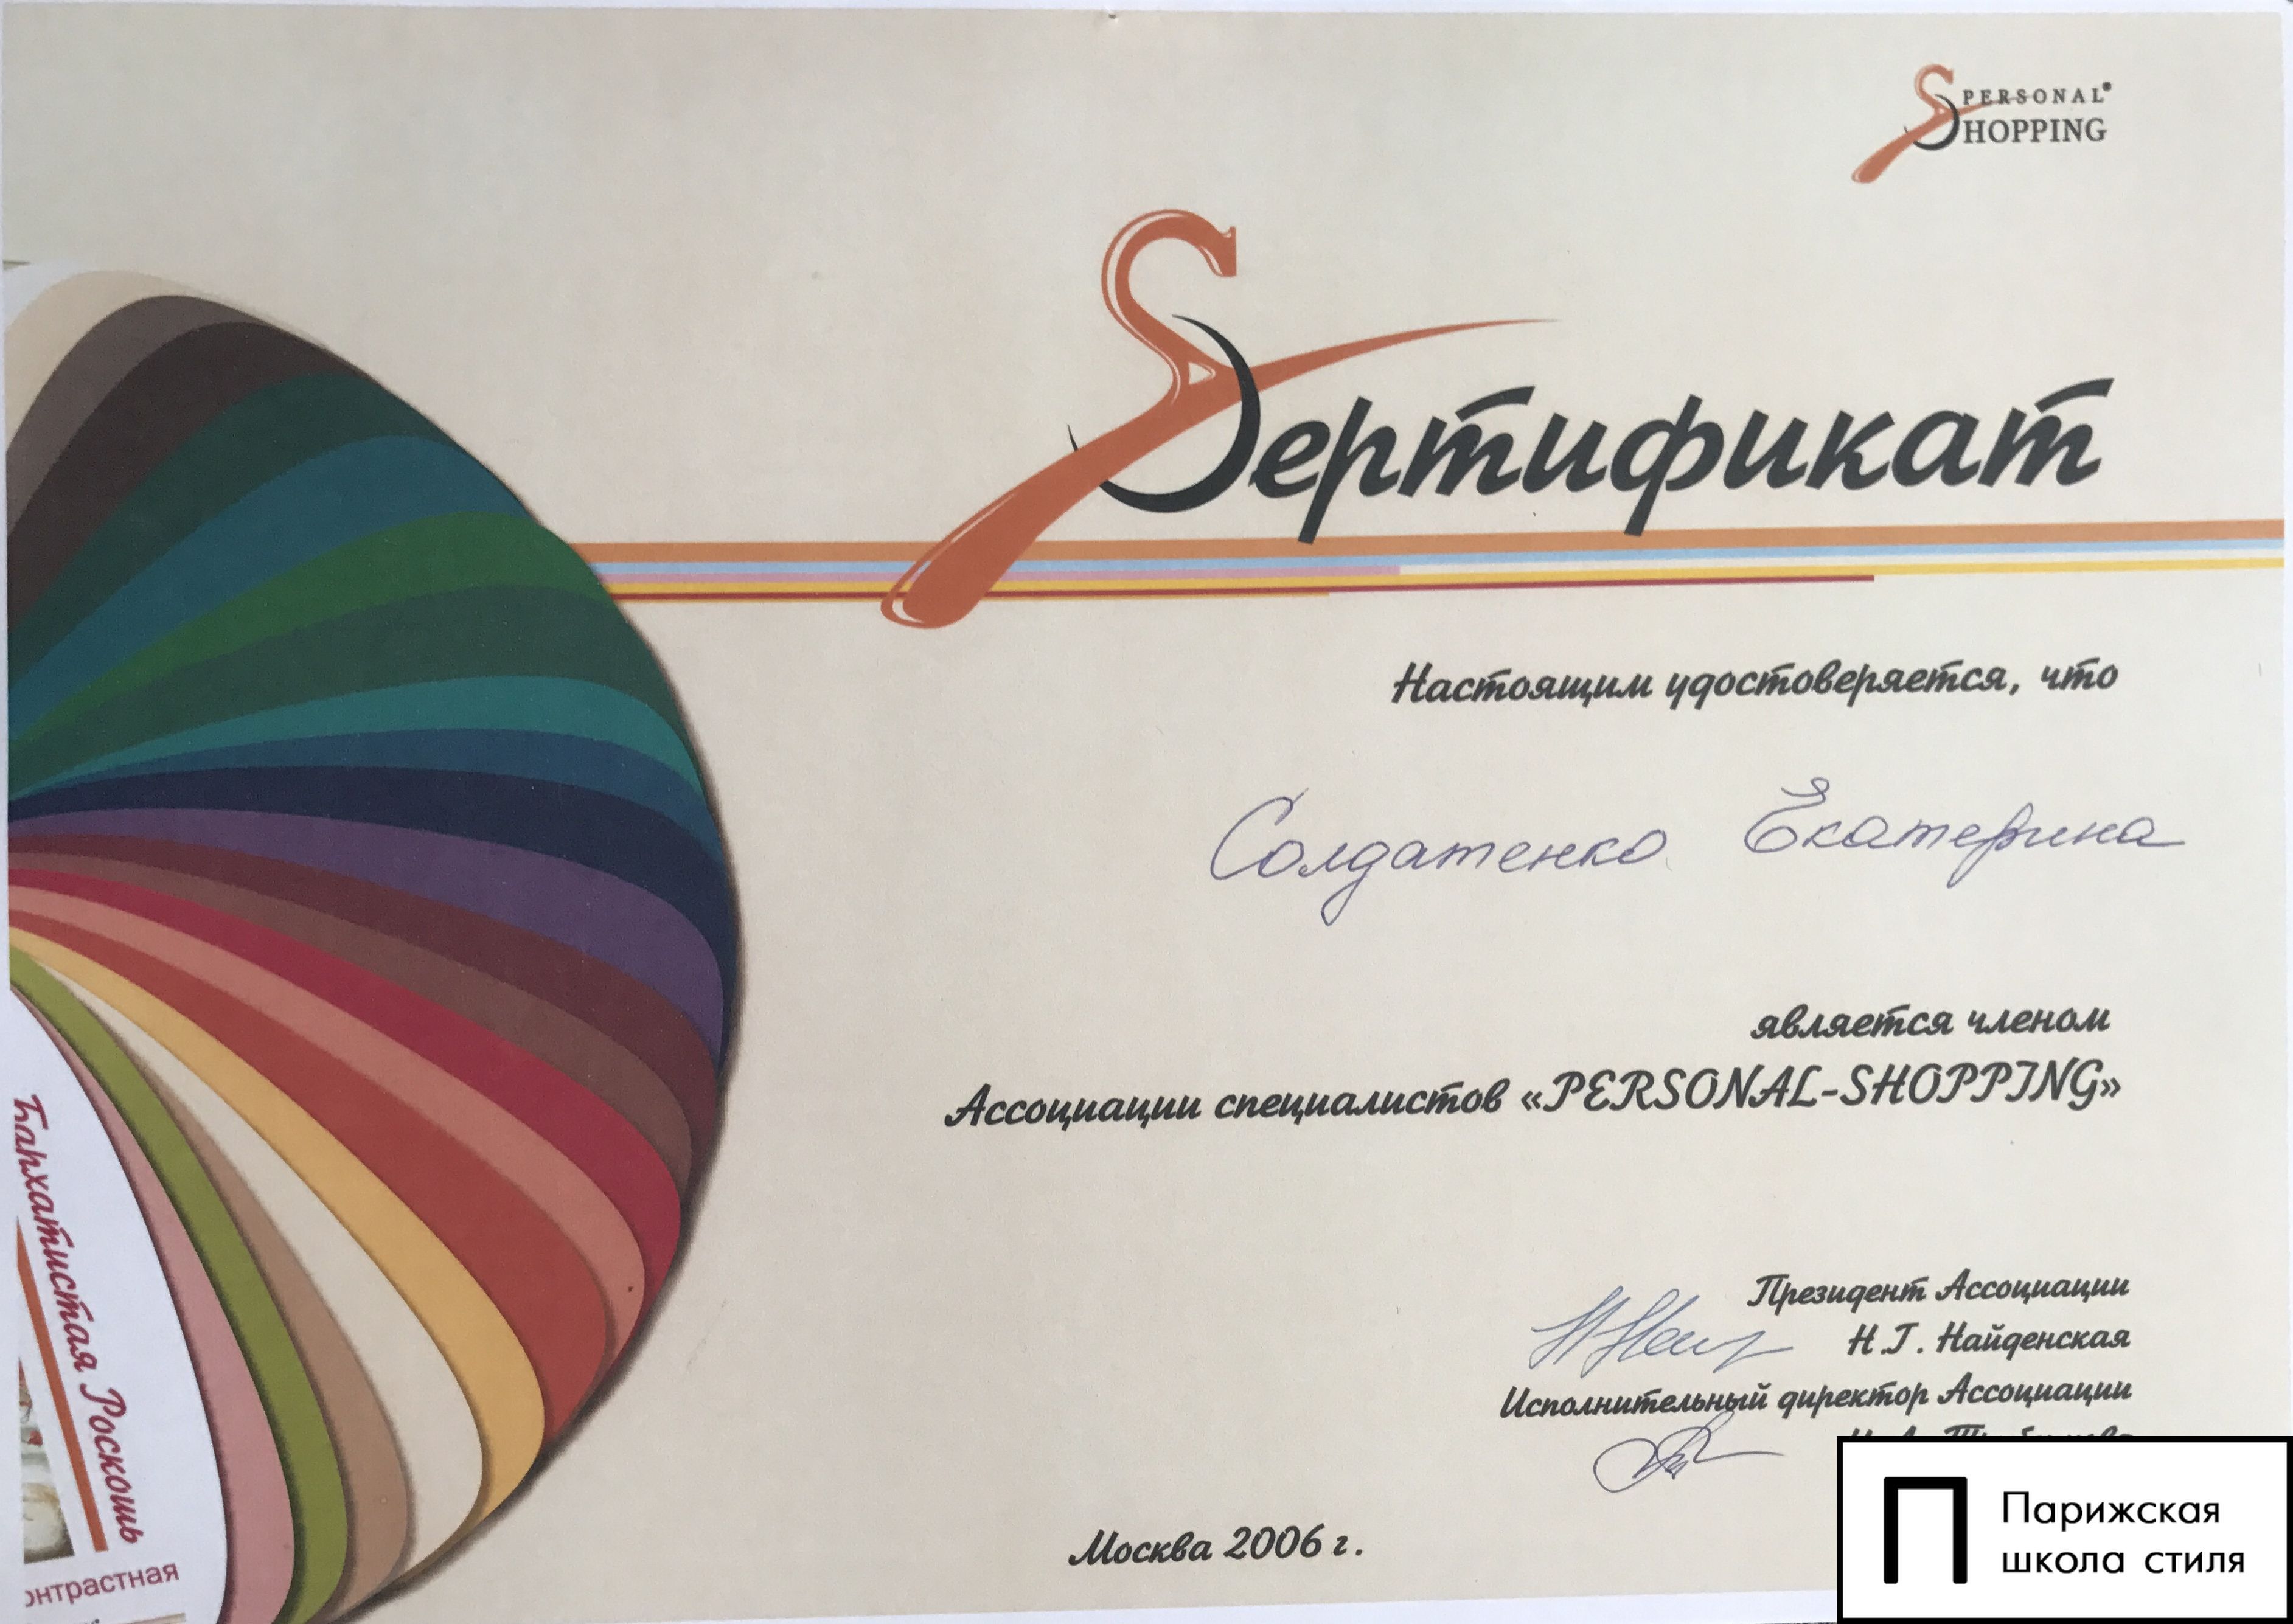 PERSONAL®
SHOPPING
Sертификат
Настоящим удостоверяется, что
Солдатенко Екатерина
является членом
Ассоциации специалистов «PERSONAL-SHOPPING»
Президент Ассоциации
Н.Г. Найденская
Исполнительный директор Ассоциации
Москва 2006 г.
Бархатистая Роскошь
онтрастная
Парижская
школа стиля